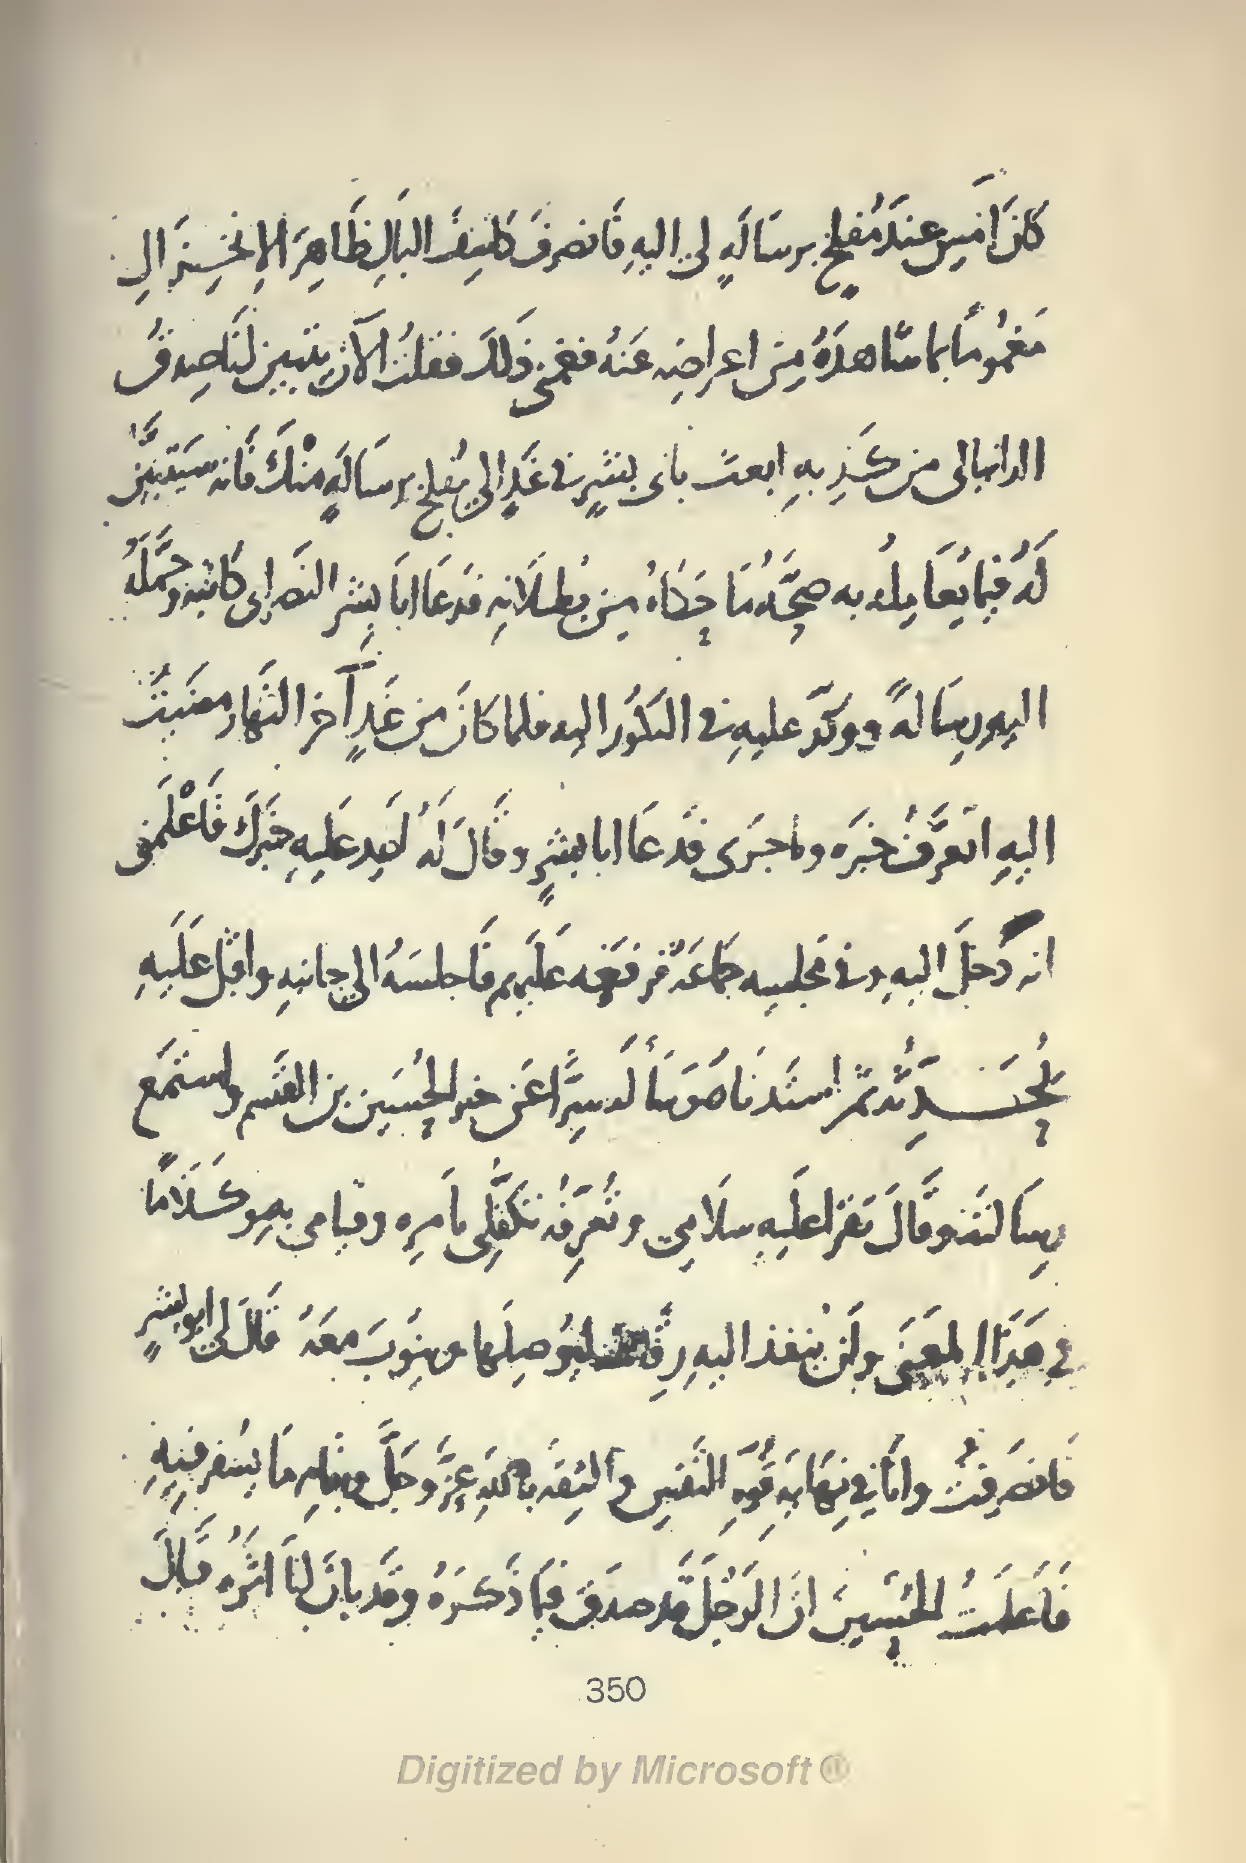 كَانَ امَسِ عِندَ مُفلحٍ برسَالَةٍ لي اليهِ فَانصَرفَ كاسِفَ البَالِ ظَاهِرَ الانخِزَالِ
مَغمُومًا بما شَاهدَهُ مِن اعراضِه عَنهُ فغمّنى ذَلكَ فقلتُ الآن يتبين لنَا صِدقُ
الدانيالى من كَذِبهِ ابعث بابى بشرٍ في غَدٍ الى مُفلحٍ برسَالَةٍ منْكَ فَانه سَيَتَبيَّنُ
لَهُ فيمَا يُعَامِلُه به صِحَّةُ مَا حَكَاهُ مِن بُطلَانِه فَدعَا ابَا بِشرِ النَصرانى كَاتبَه وحَمَّلَهُ
اليهِ رِسَالَةً ووكّدَ عليهِ في البكُور اليه فلما كَانَ من غَدٍ آخرَ النَهارِ مضَيتُ
اليهِ اتعرَّفُ خبَرَه وما جَرَى فَدعَا ابا بشرٍ وقَالَ لَهُ اعِد عَليهِ خبَرَكَ فَاعْلَمَنى
انه دَخلَ اليهِ وفي مَجلسِه جماعَة فرفَعَه عَلَيهِم فَاجلسَهُ الى جانبهِ واقبلَ عَلَيهِ
يُحَدِّثُه ثمّ استَدنَاهُ وَسَأَلَه سِرًّا عَن خبر الحُسَين بن القَسم واستَمَعَ
رِسَالتَه وقَالَ تَقرَا علَيهِ سلَامِى وتُعرِّفُه تكَفُّلِى بامرِه وقيامى بهِ وكَلَامًا
فِي هَذَا المعنَى ولَن يُنفذ اليهِ ليُوصِلَها وينُوبَ معَهُ قَالَ لي ابو بشرٍ
فَانصَرفتُ وانَا في نِهَايَةِ قُوةِ النَفسِ والثِقَة باللهِ عزَّ وجَلَّ وبتمامِ مَا يسُفر فيهِ
فَاعلَمتُ الحُسَينَ انَ الرَجُلَ قَد صدَقَ فيمَا ذَكَرَهُ وقَد بانَ لنَا اثرُه قَالَ
350
Digitized by Microsoft ®